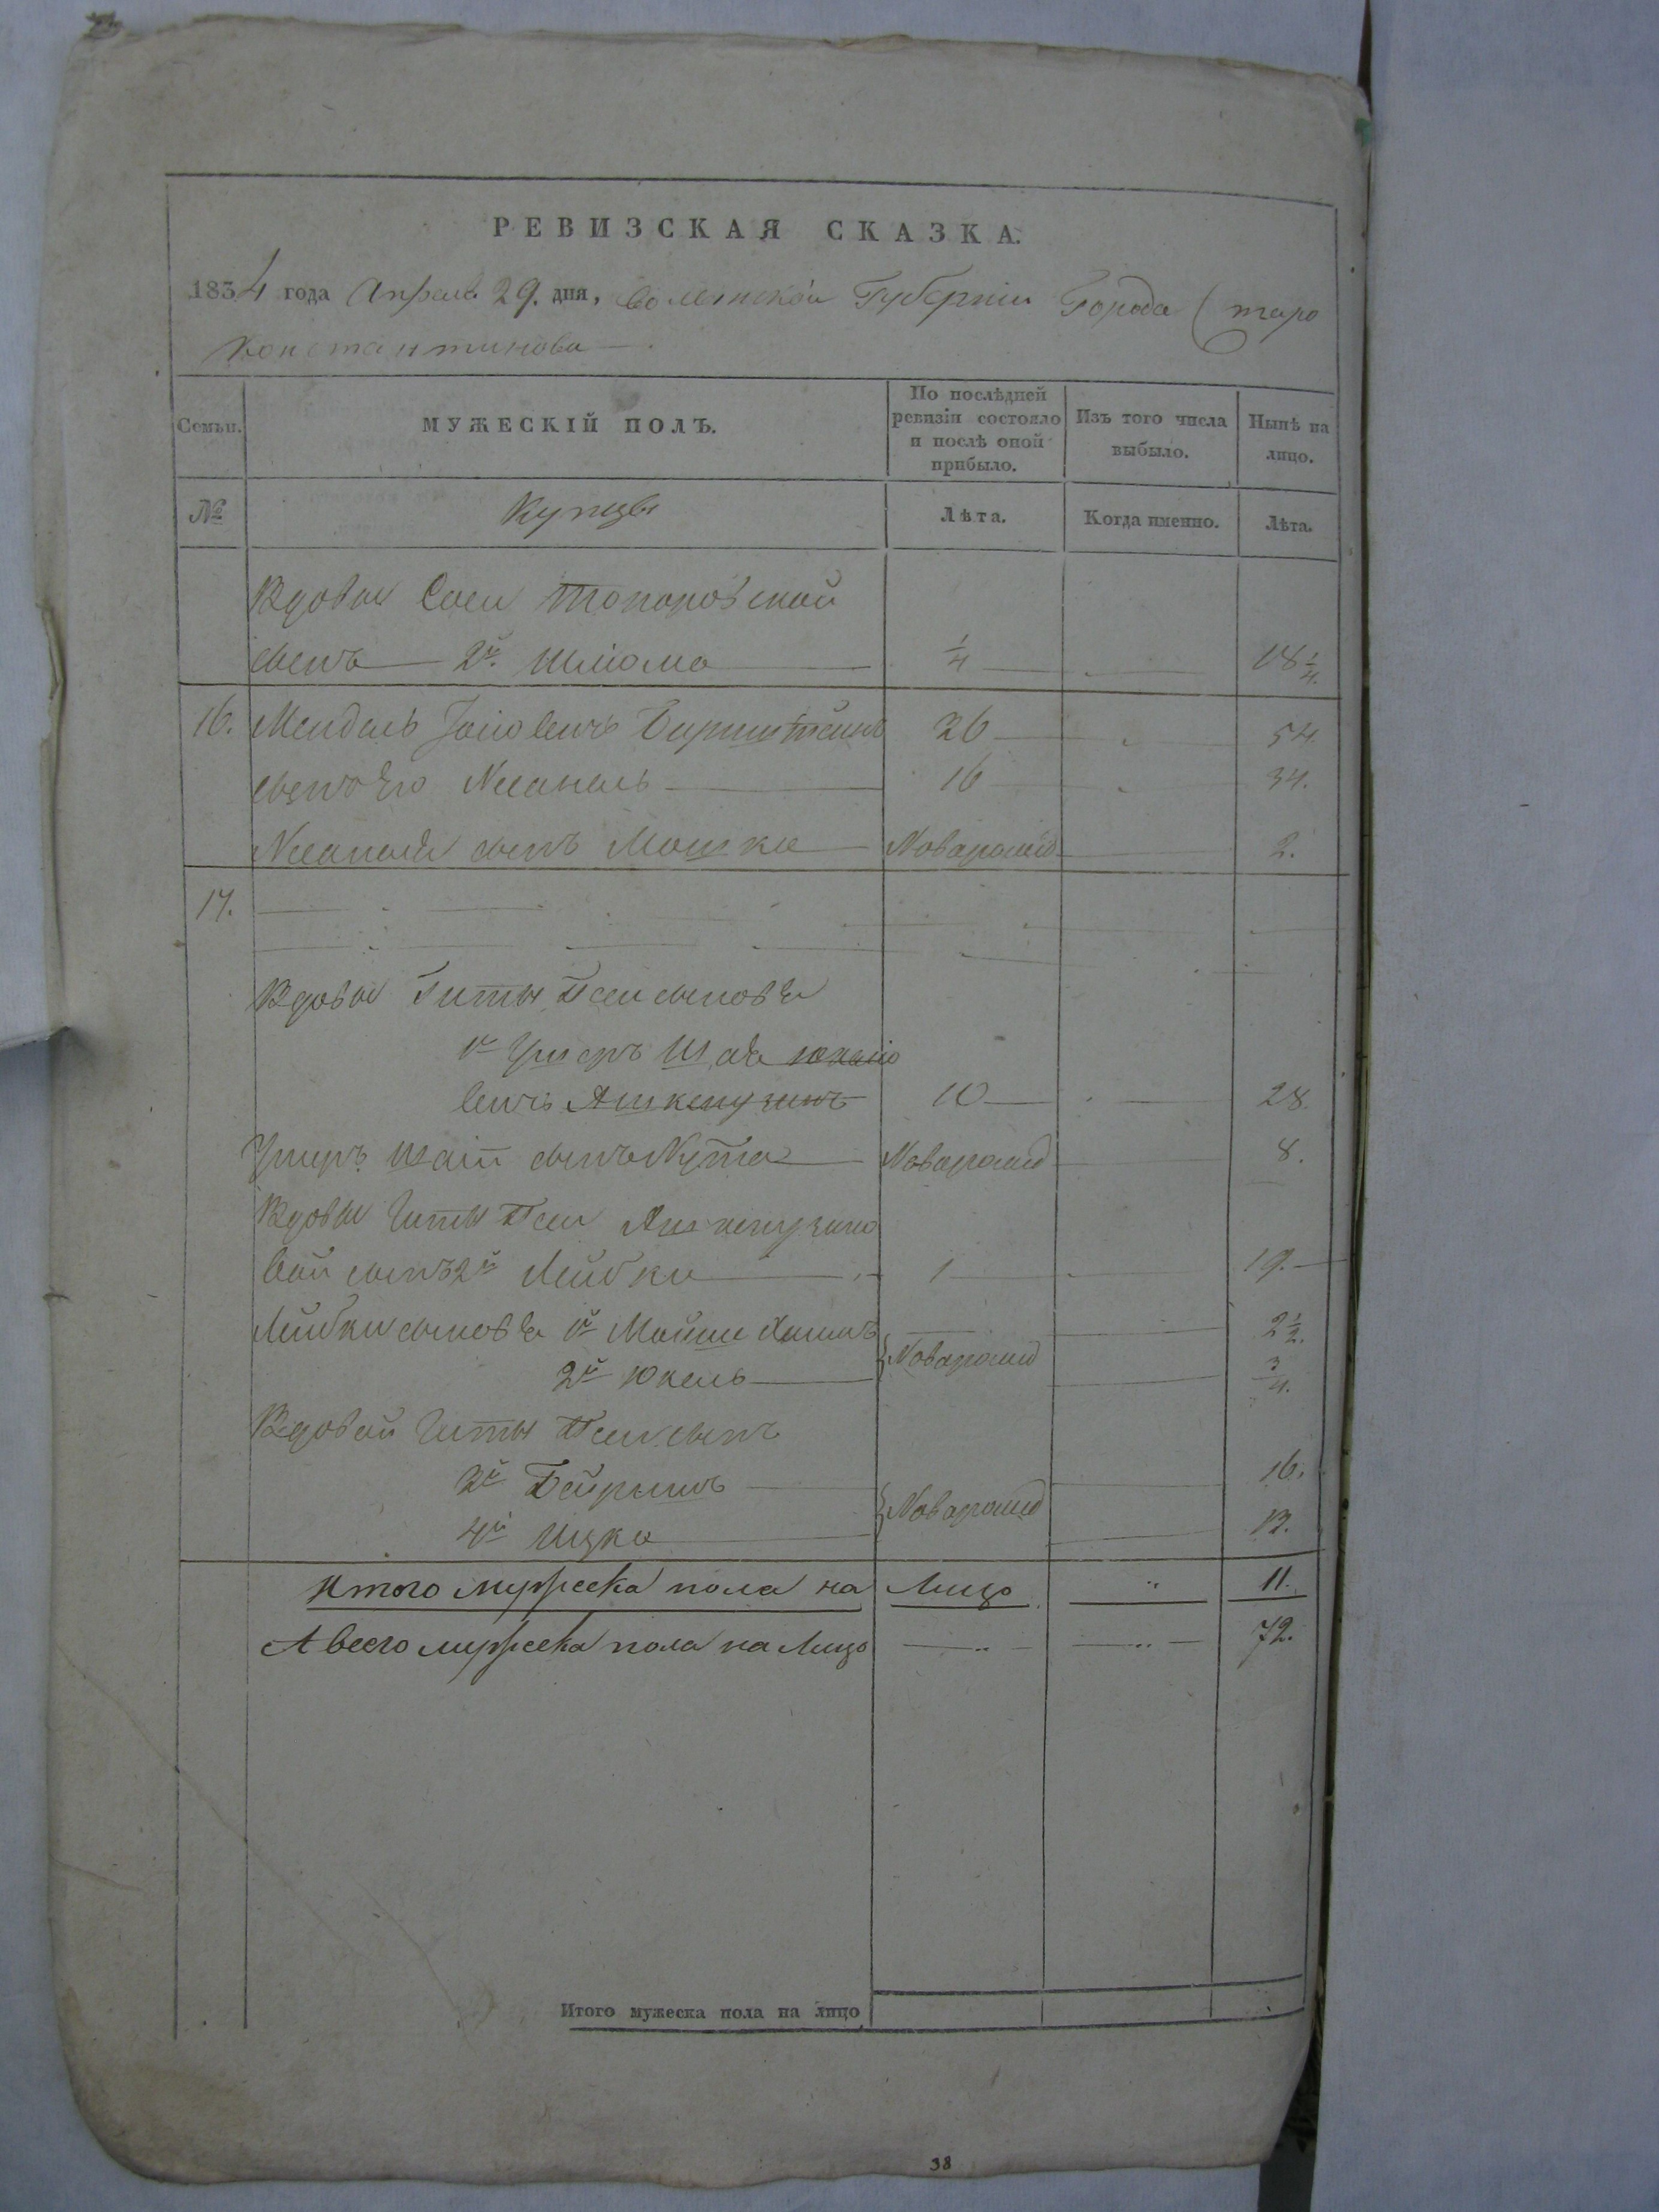 РЕВИЗСКАЯ СКАЗКА.
1834 года Апреля 29. дня, Волынской Губернии Города Старо
Константинова
Семьи. МУЖЕСКІЙ ПОЛЪ. По послѣдней ревизіи состояло и послѣ оной прибыло. Изъ того числа выбыло. Нынѣ на лицо.
№ Купцы Лѣта. Когда именно. Лѣта.
Вдовы Соси Топоровской
сынъ 2й Шліома 1/4 18 1/4.
16. Мендель Бернштейнъ 36 54.
сынъ Его 16 34.
сынъ Мошко Новорожд 2.
17.
Вдовы Гиты Песи сыновья
1й
10 28.
сынъ Нута Новорожд 8.
Вдовы Гиты Песи
вой сынъ 2й Лейбко 1 19.
Лейбки сыновья 1й 2 1/2.
2й Юкель Новорожд 3/4.
Вдовой Гиты Песи сынъ
3й Бейрышъ 16.
4й Ицко Новорожд 13.
Итого мужеска пола на Лицо 11.
А всего мужеска пола на Лицо 72.
Итого мужеска пола на лицо
38